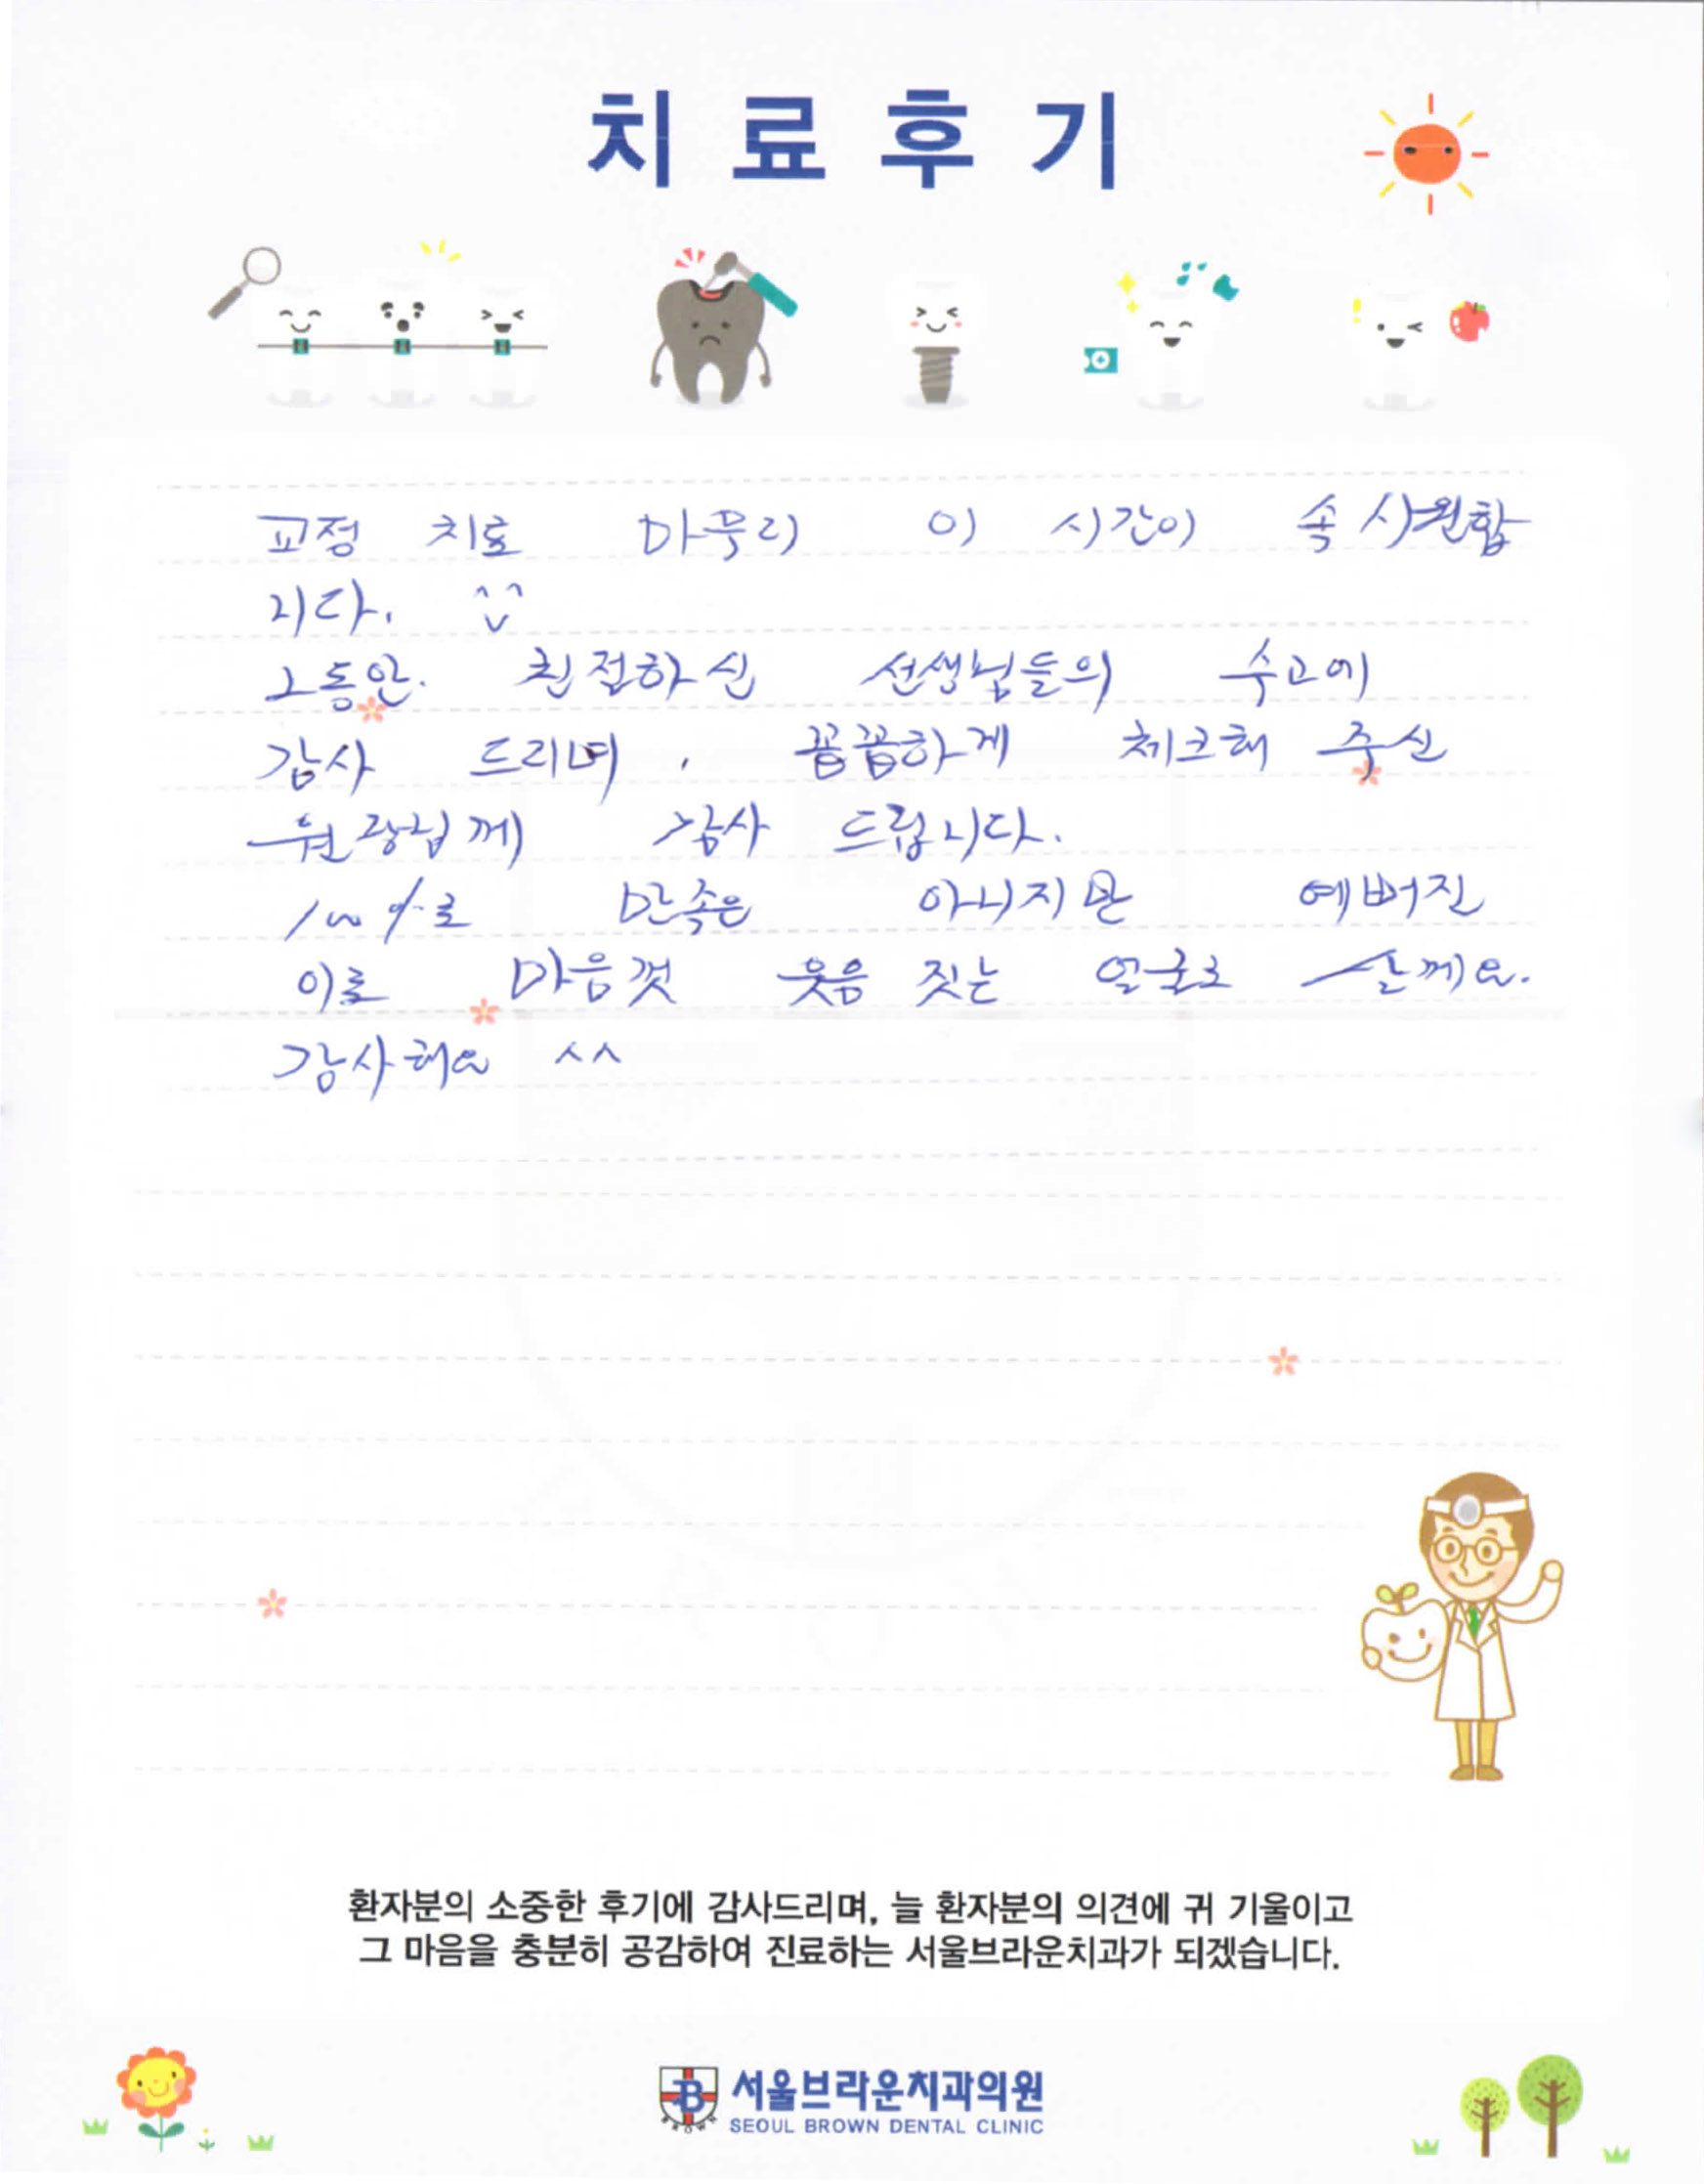 치료후기
교정 치료 마무리 이 시간이 속 시원합
니다. ^^
그동안. 친절하신 선생님들의 수고에
감사 드리며, 꼼꼼하게 체크해 주신
원장님께 감사 드립니다.
100%로 만족은 아니지만 예뻐진
이로 마음껏 웃음 짓는 얼굴로 살께요.
감사해요 ^^
환자분의 소중한 후기에 감사드리며, 늘 환자분의 의견에 귀 기울이고
그 마음을 충분히 공감하여 진료하는 서울브라운치과가 되겠습니다.
B 서울브라운치과의원
BROWN SEOUL BROWN DENTAL CLINIC